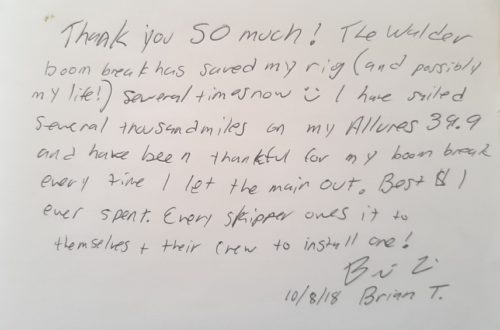 Thank you SO much! The Walder
boom break has saved my rig (and possibly
my life!) several times now ☺ I have sailed
several thousand miles on my Allures 39.9
and have been thankful for my boom break
every time I let the main out. Best $ I
ever spent. Every skipper owes it to
themselves + their crew to install one!
10/8/18 Brian T.